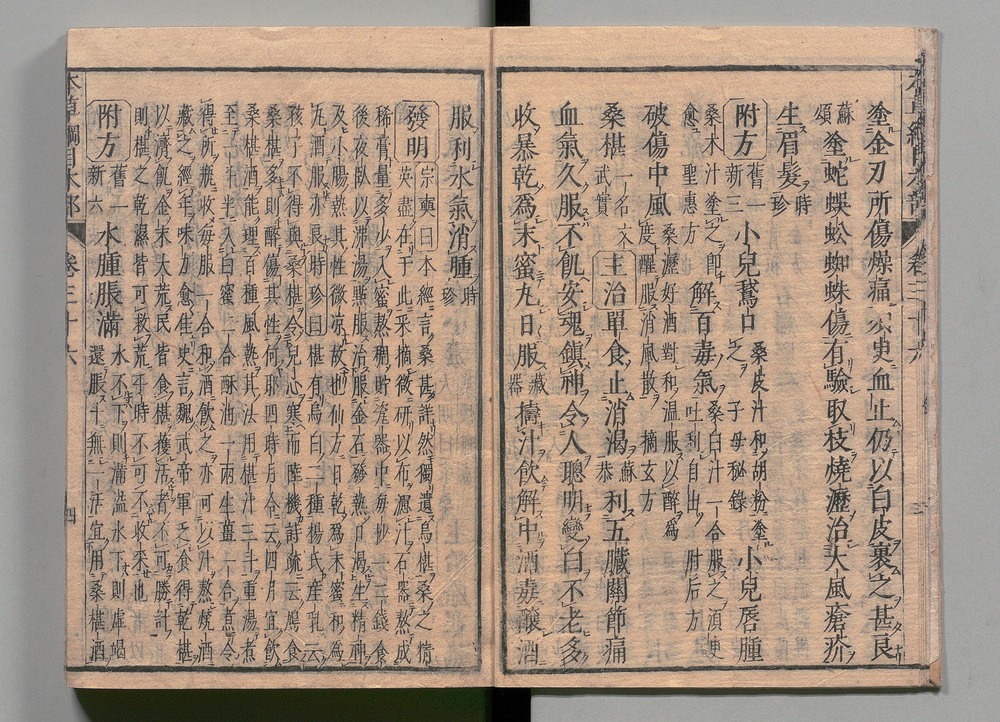 塗金刃所傷燥痛須臾血止仍以白皮裹之甚良
蘇頌塗蛇蜈蚣蜘蛛傷有驗取枝燒瀝治大風瘡疥
生眉髮時珍
附方舊一新三小兒鵞口桑皮汁和胡粉塗之子母秘錄小兒唇腫
桑木汁塗之即愈聖惠方解百毒氣桑白汁一合服之須臾吐利自出肘后方
破傷中風桑瀝好酒對和温服以醉為度醒服消風散摘玄方
桑椹一名文武實主治單食止消渴蘇恭利五臟關節痛
血氣久服不飢安魂鎮神令人聰明變白不老多
收暴乾為末蜜丸日服藏器擣汁飲解中酒毒釀酒
服利水氣消腫時珍
發明宗奭曰本經言桑甚詳然獨遺烏椹桑之精
英盡在于此采摘微研以布濾汁石器熬成
稀膏量多少入蜜熬稠貯瓷器中每抄一二錢食
後夜臥以沸湯點服治服金石發熱口渴生精神
及小腸熱其性微涼故也仙方日乾為末蜜和為
丸酒服亦良時珍曰椹有烏白二種楊氏産乳云
孩子不得與桑椹令兒心寒而陸機詩疏云鳩食
桑椹多則醉傷其性何耶四時月令云四月宜飲
桑椹酒能理百種風熱其法用椹汁三斗重湯煮
至一斗半入白蜜二合酥油一兩生薑一合煮令
得所瓶收每服一合和酒飲之亦可以汁熬燒酒
藏之經年味力愈佳史言魏武帝軍乏食得乾椹
以濟飢金末大荒民皆食椹獲活者不可勝計
則椹之乾濕皆可救荒平時不可不收采也
附方舊一新六水腫脹滿水不下則滿溢水下則虛竭還脹十無一活宜用桑椹酒
本草綱目木部 卷三十六 四